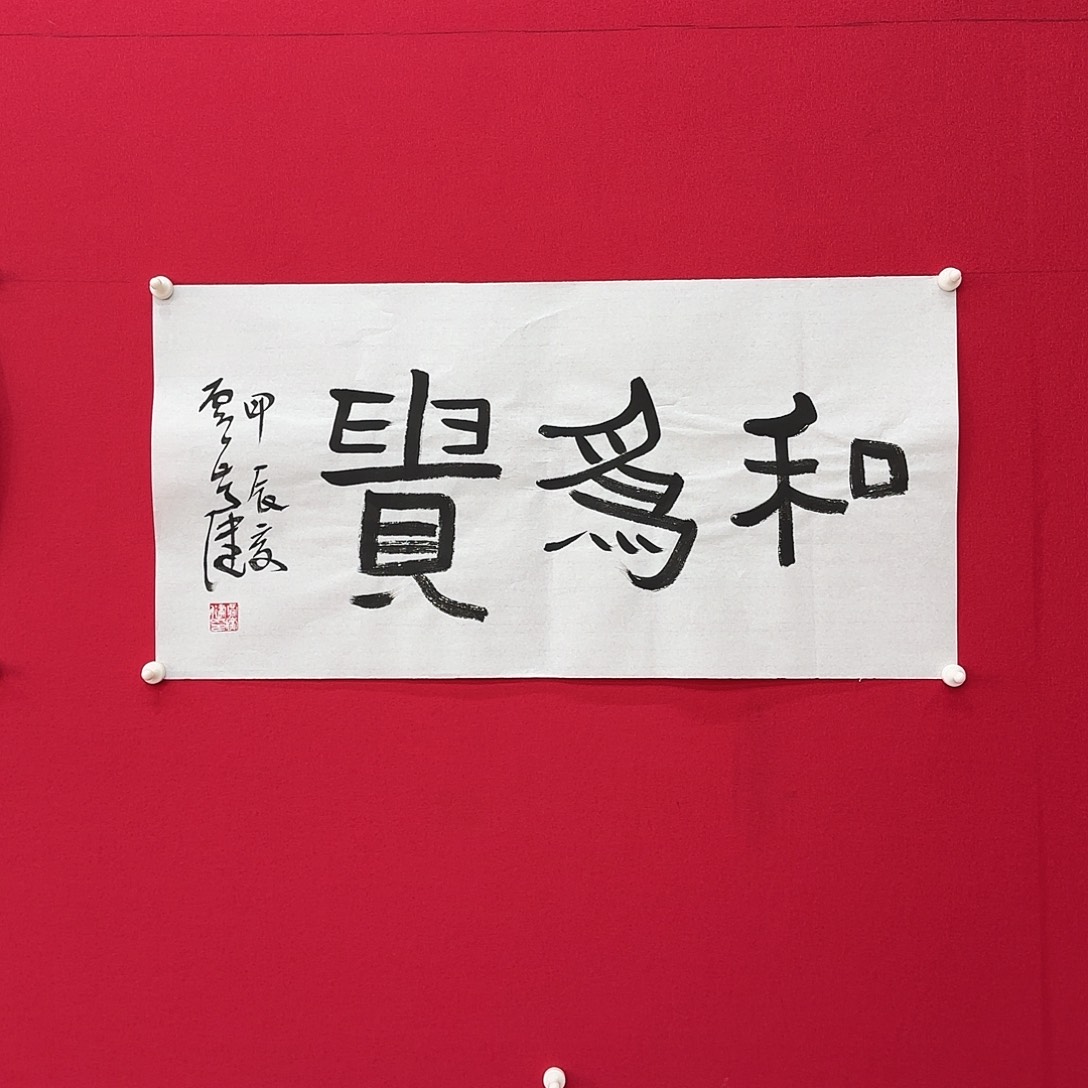 和為貴
甲辰夏